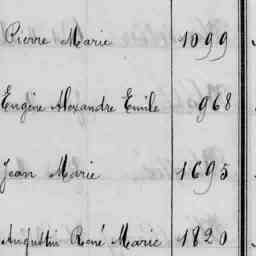 Pierre Marie 1099
Eugène Alexandre Emile 968
Jean Marie 1695
Augustin René Marie 1820